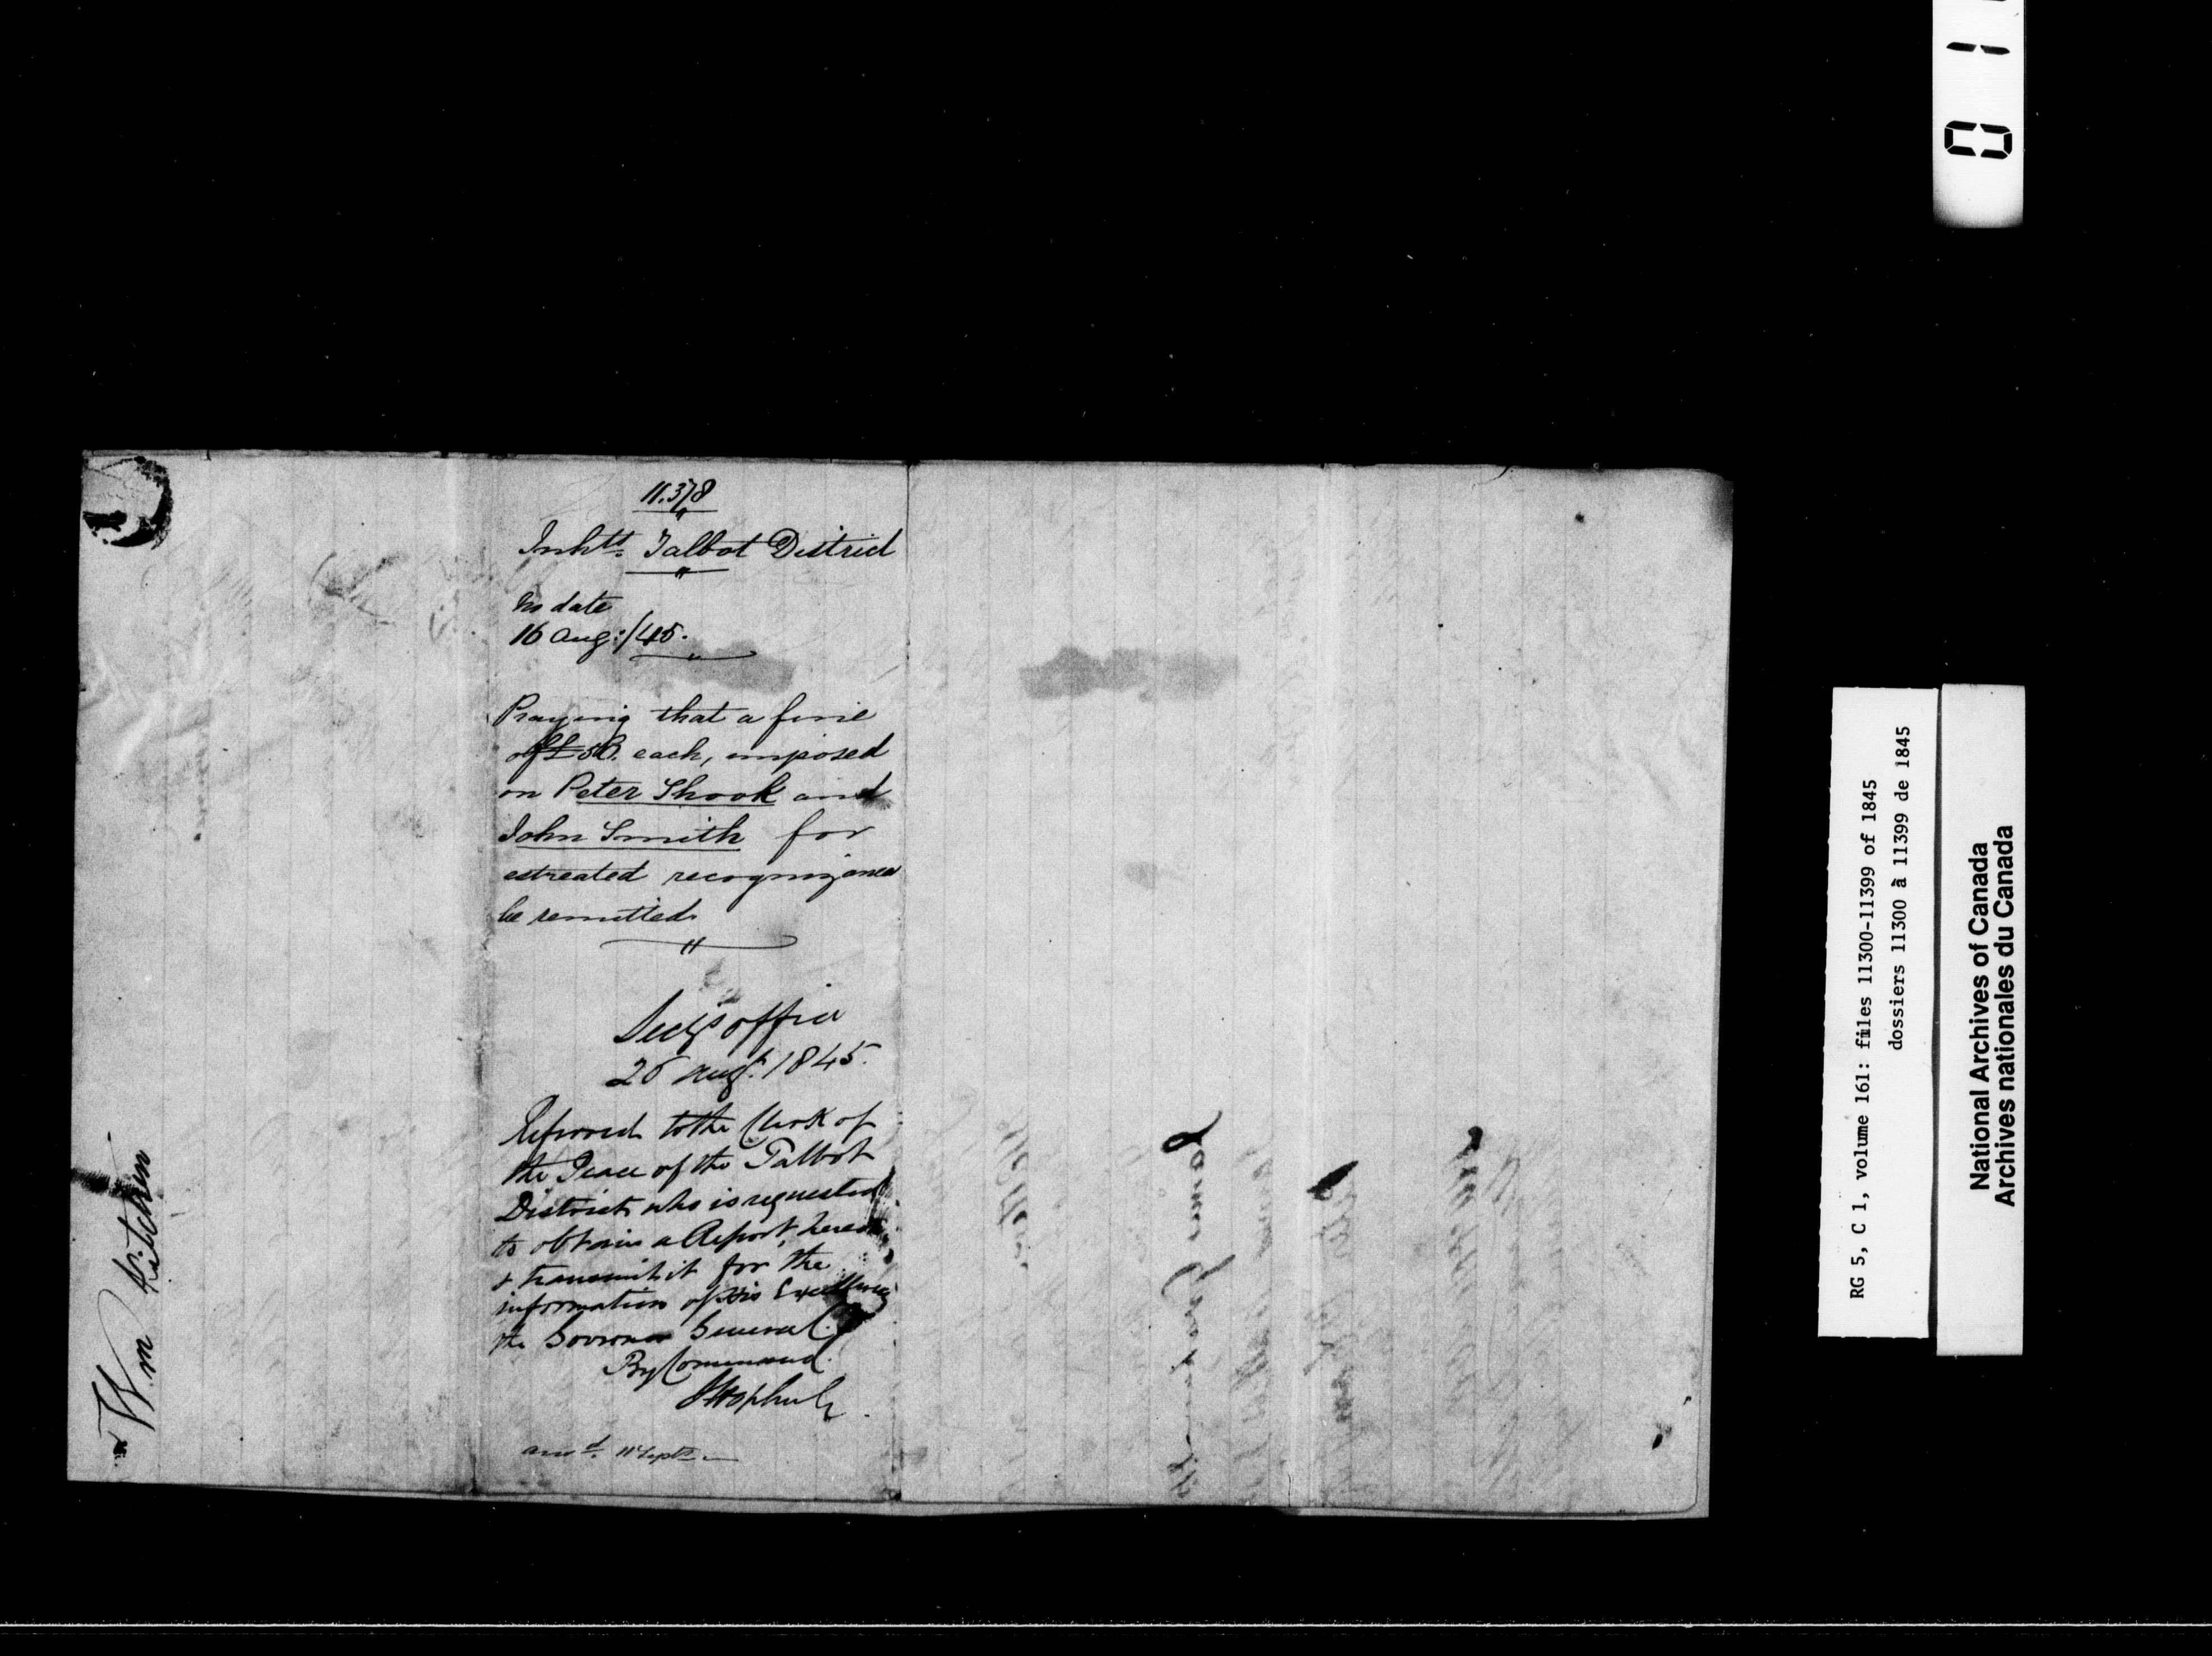 11.378
Inhts. Talbot District
No date
16 Aug:/45.
Praying that a fine
of £50. each, imposed
on Peter Shook and
John Smith for
estreated recognizances
be remitted
Secy's Office
26 Augt. 1845.
Referred to the Clerk of
the Peace of the Talbot
District who is requested
to obtain a Report hereon
& transmit it for the
information of His Excellency
the Governor General.
By Command.
JHopkirk
ansd. 11 Septr.
Wm Kitchen
RG 5, C 1, volume 161: files 11300-11399 of 1845
dossiers 11300 à 11399 de 1845
National Archives of Canada
Archives nationales du Canada
0 1